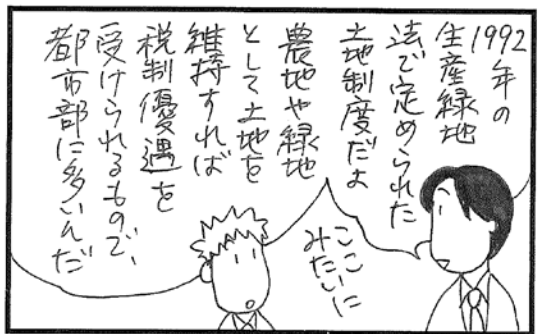 1992年の
生産緑地
法で定められた
土地制度だよ
農地や緑地
として土地を
維持すれば
税制優遇を
受けられるもので、
都市部に多いんだ
ここ
みたいに